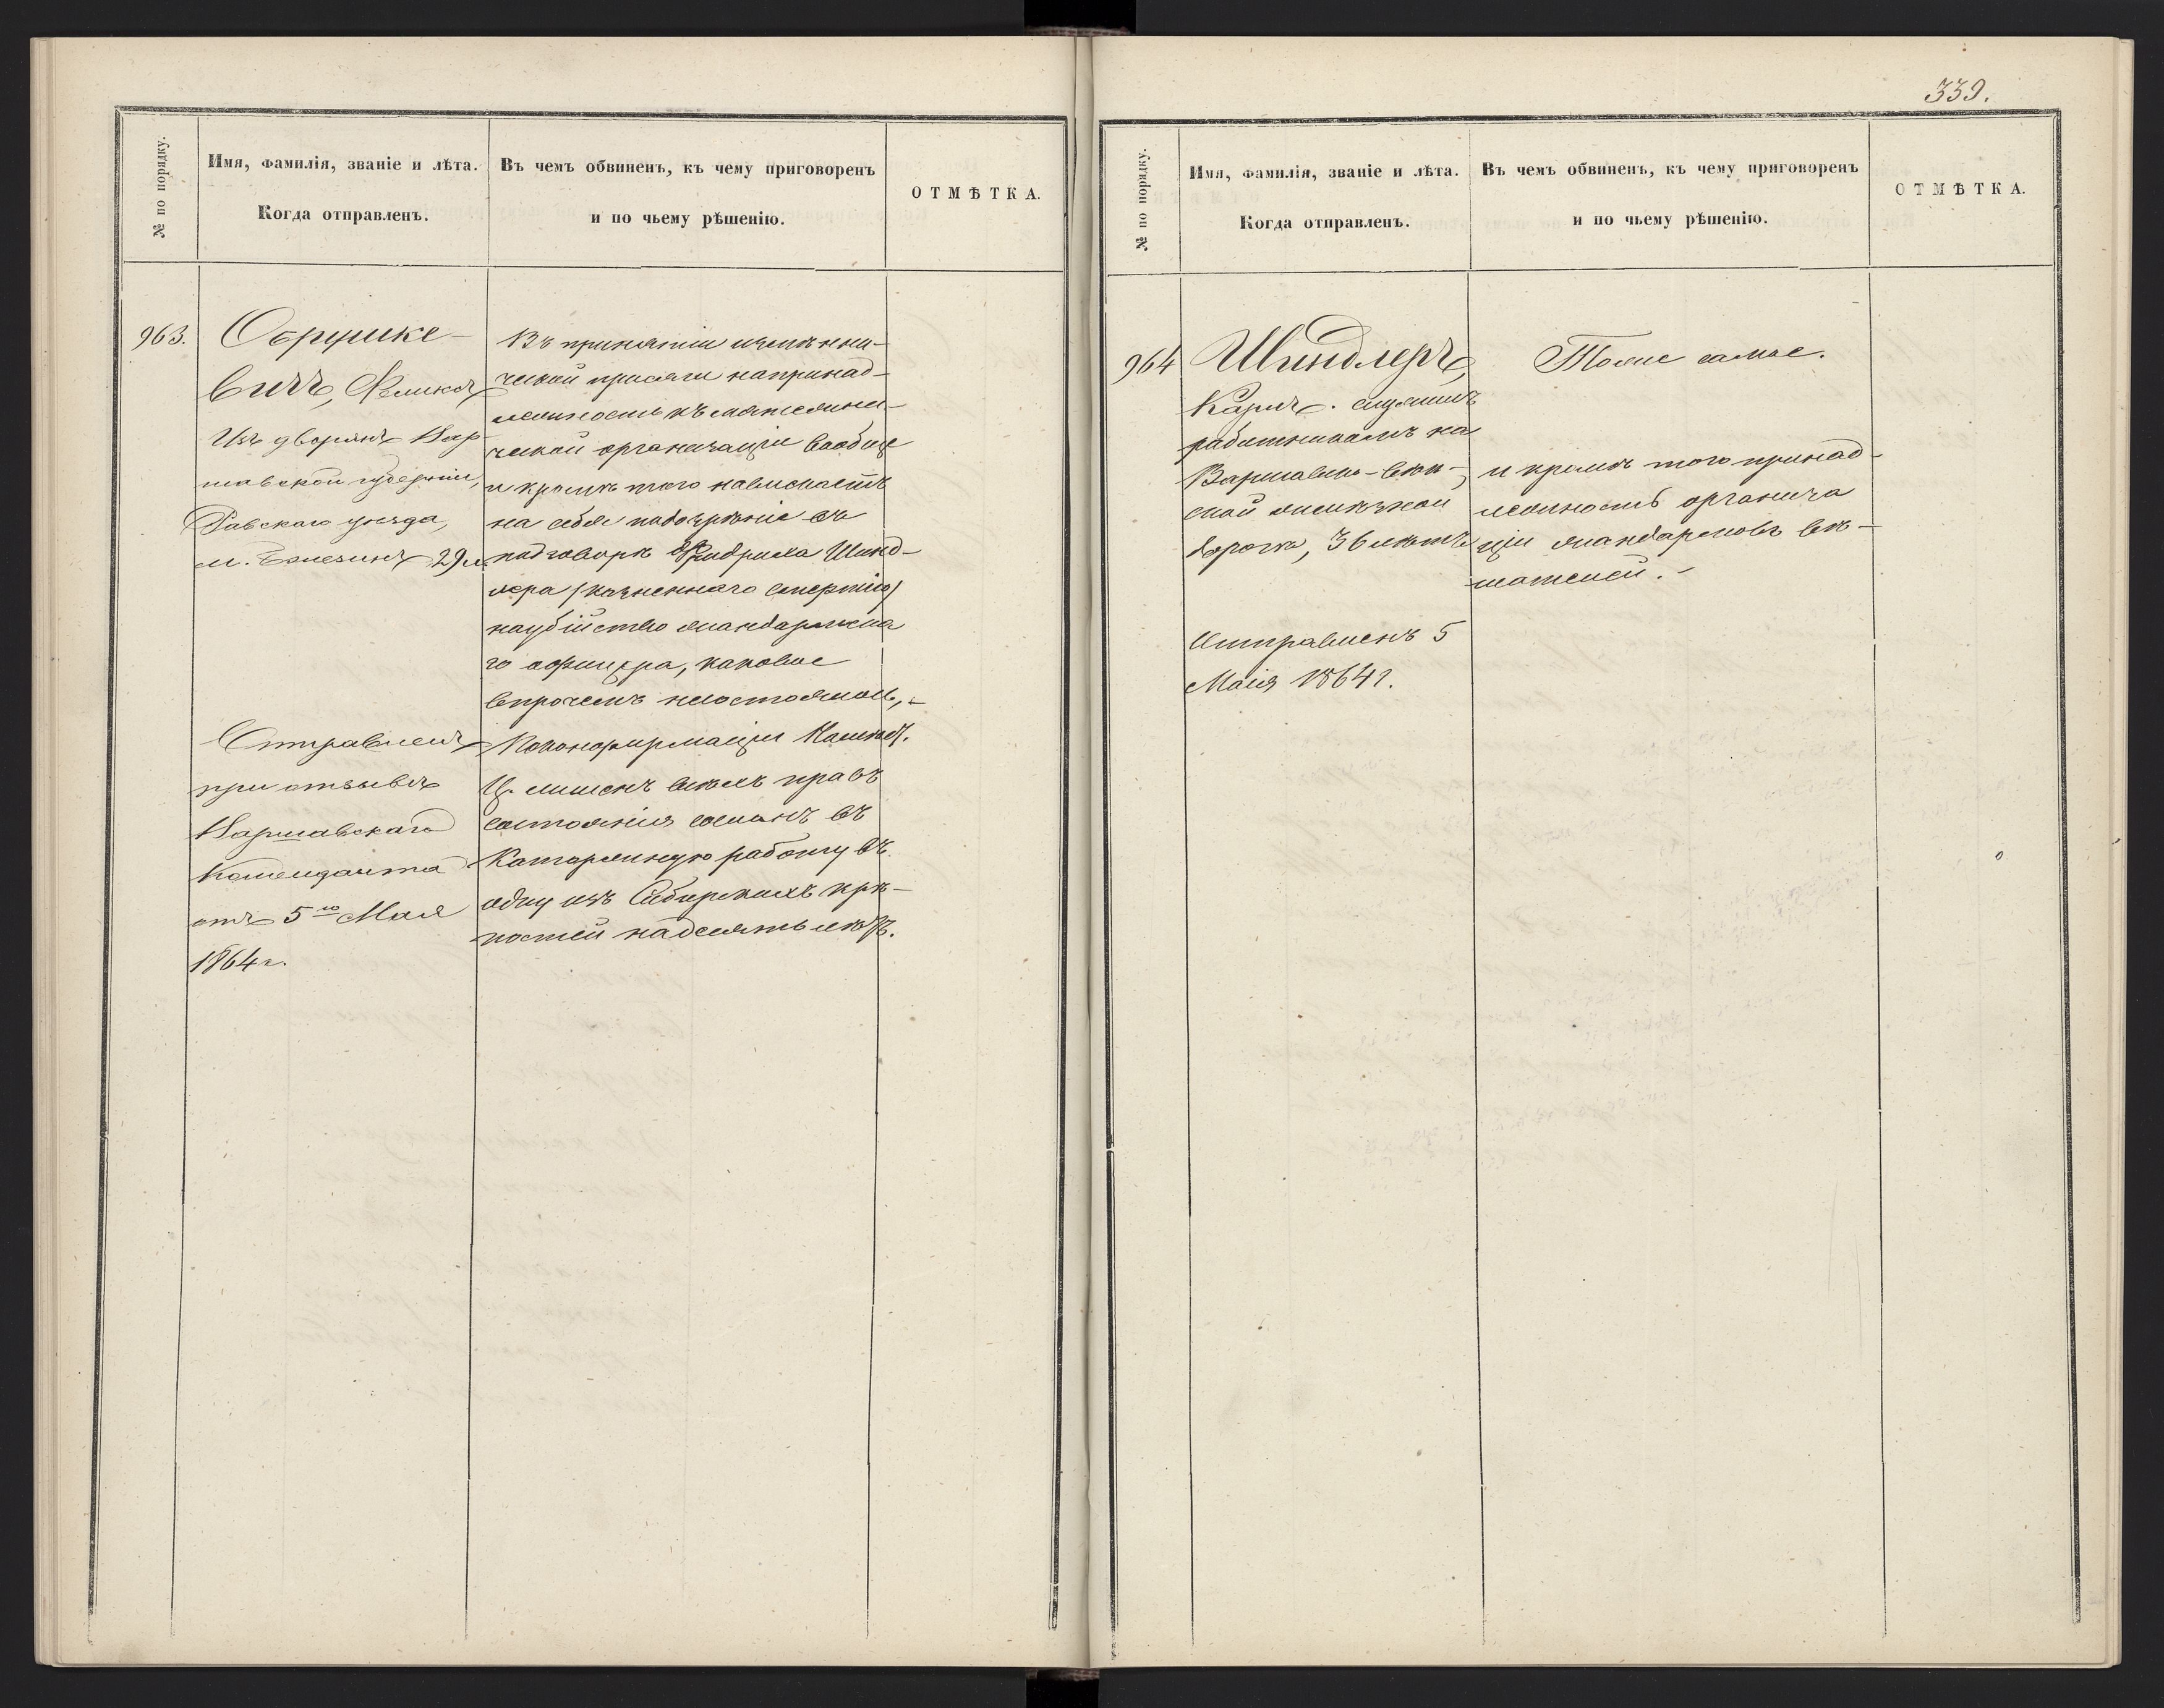 339.
№ по порядку.
Имя, фамилія, званіе и лѣта.
Когда отправленъ.
Въ чемъ обвиненъ, къ чему приговоренъ
и по чьему рѣшенію.
ОТМѢТКА.
963.
вичъ, Феликсъ
Изъ дворянъ Вар-
шавской губерніи,
Равскаго уѣзда,
м. 29 л.
Отправленъ
при отзывѣ
Варшавскаго
Коменданта
отъ 5го Мая
1864 г.
Въ принятіи измѣнни-
ческой присяги на принад-
лежность къ мятежни-
ческой организаціи вообще
и кромѣ того навлекаетъ
на себя подозрѣніе въ
подговорѣ Фридриха Шинд-
лера (казненнаго смертію)
на убійство жандармска
го офицера, каковое
впрочемъ не состоялось,
По конфирмаціи Намѣст.
Ц. лишенъ всѣхъ правъ
состоянія сосланъ въ
Каторжную работу въ
одну изъ Сибирскихъ крѣ-
постей на десять лѣтъ.
№ по порядку.
Имя, фамилія, званіе и лѣта.
Когда отправленъ.
Въ чемъ обвиненъ, къ чему приговоренъ
и по чьему рѣшенію.
ОТМѢТКА.
964
Шиндлеръ,
Карлъ. служилъ
работникомъ на
Варшавско-Вѣн-
ской желѣзной
дорогѣ, 36 лѣтъ
Отправленъ 5
Маія 1864 г.
Тоже самое.
и кромѣ того принад-
лежность организа
ціи жандармовъ вѣ-
шателей.